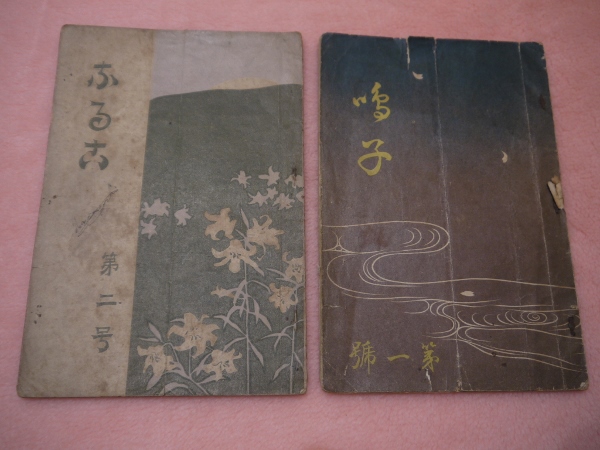 なる古
第二号
鳴子
第一號